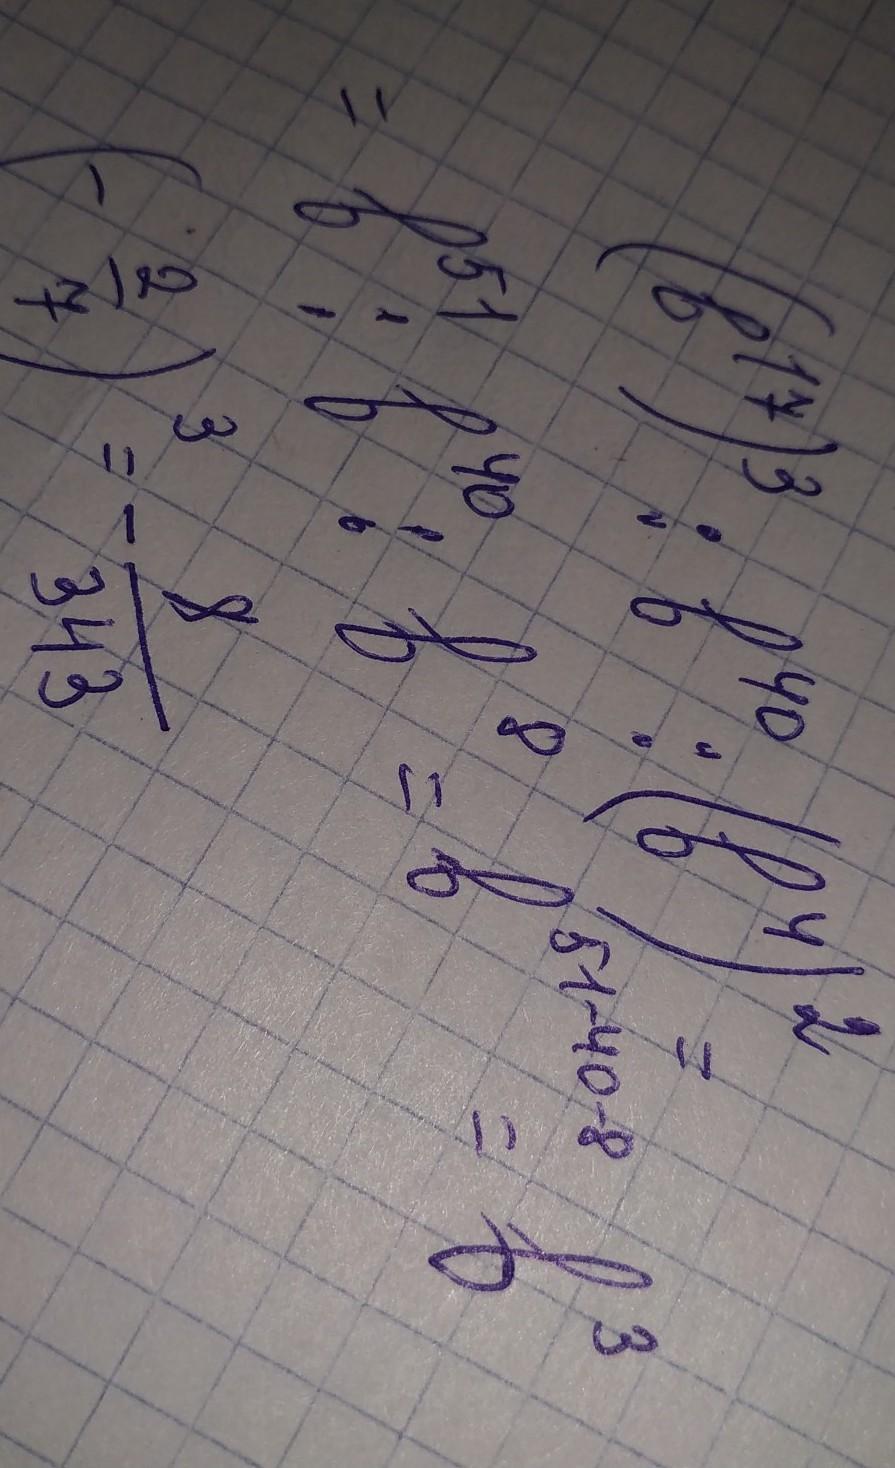 (b¹⁷)³ : b⁴⁰ : (b⁴)² =
= b⁵¹ : b⁴⁰ : b⁸ = b⁵¹⁻⁴⁰⁻⁸ = b³
(-2/7)³ = -8/343